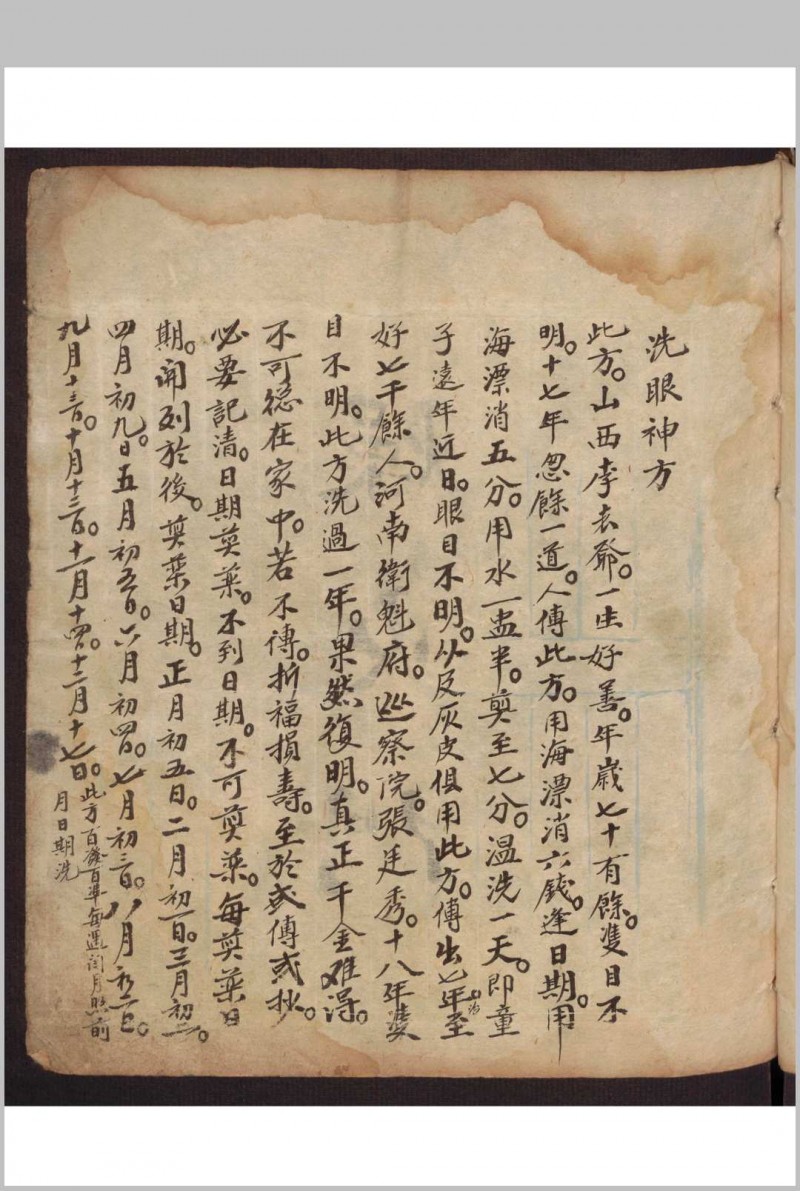 洗眼神方
此方。山西李老爺。一生好善。年歲七十有餘。隻目不
明。十七年忽餘一道。人傳此方。用海漂消六錢。逢日期。用
海漂消五分。用水一盅半。煎至七分。温洗一天。即童
子遠年近日。眼目不明。以及灰皮俱用此方。傳出七年。治至
好七千餘人。河南衛魁府。巡察院。張廷秀。十八年雙
目不明。此方洗過一年。果然復明。真正千金难得。
不可隐在家中。若不傳。折福損壽。至於或傳或抄。
必要記清。日期煎藥。不到日期。不可煎藥。每煎藥日
期。開列於後。煎藥日期。正月初五日。二月初一日。三月初二。
四月初九日。五月初五日。六月初四日。七月初三日。八月初二日。
九月十三日。十月十三日。十一月十四日。十二月十七日。此方百發百準每遇閏月照前
月日期洗